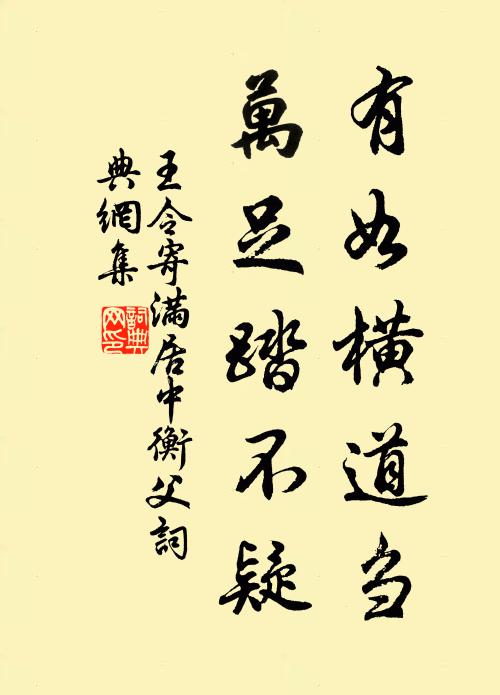 有如橫道刍
萬足踏不疑
王令寄滿居中衡父詞
典網集
詞典
网印